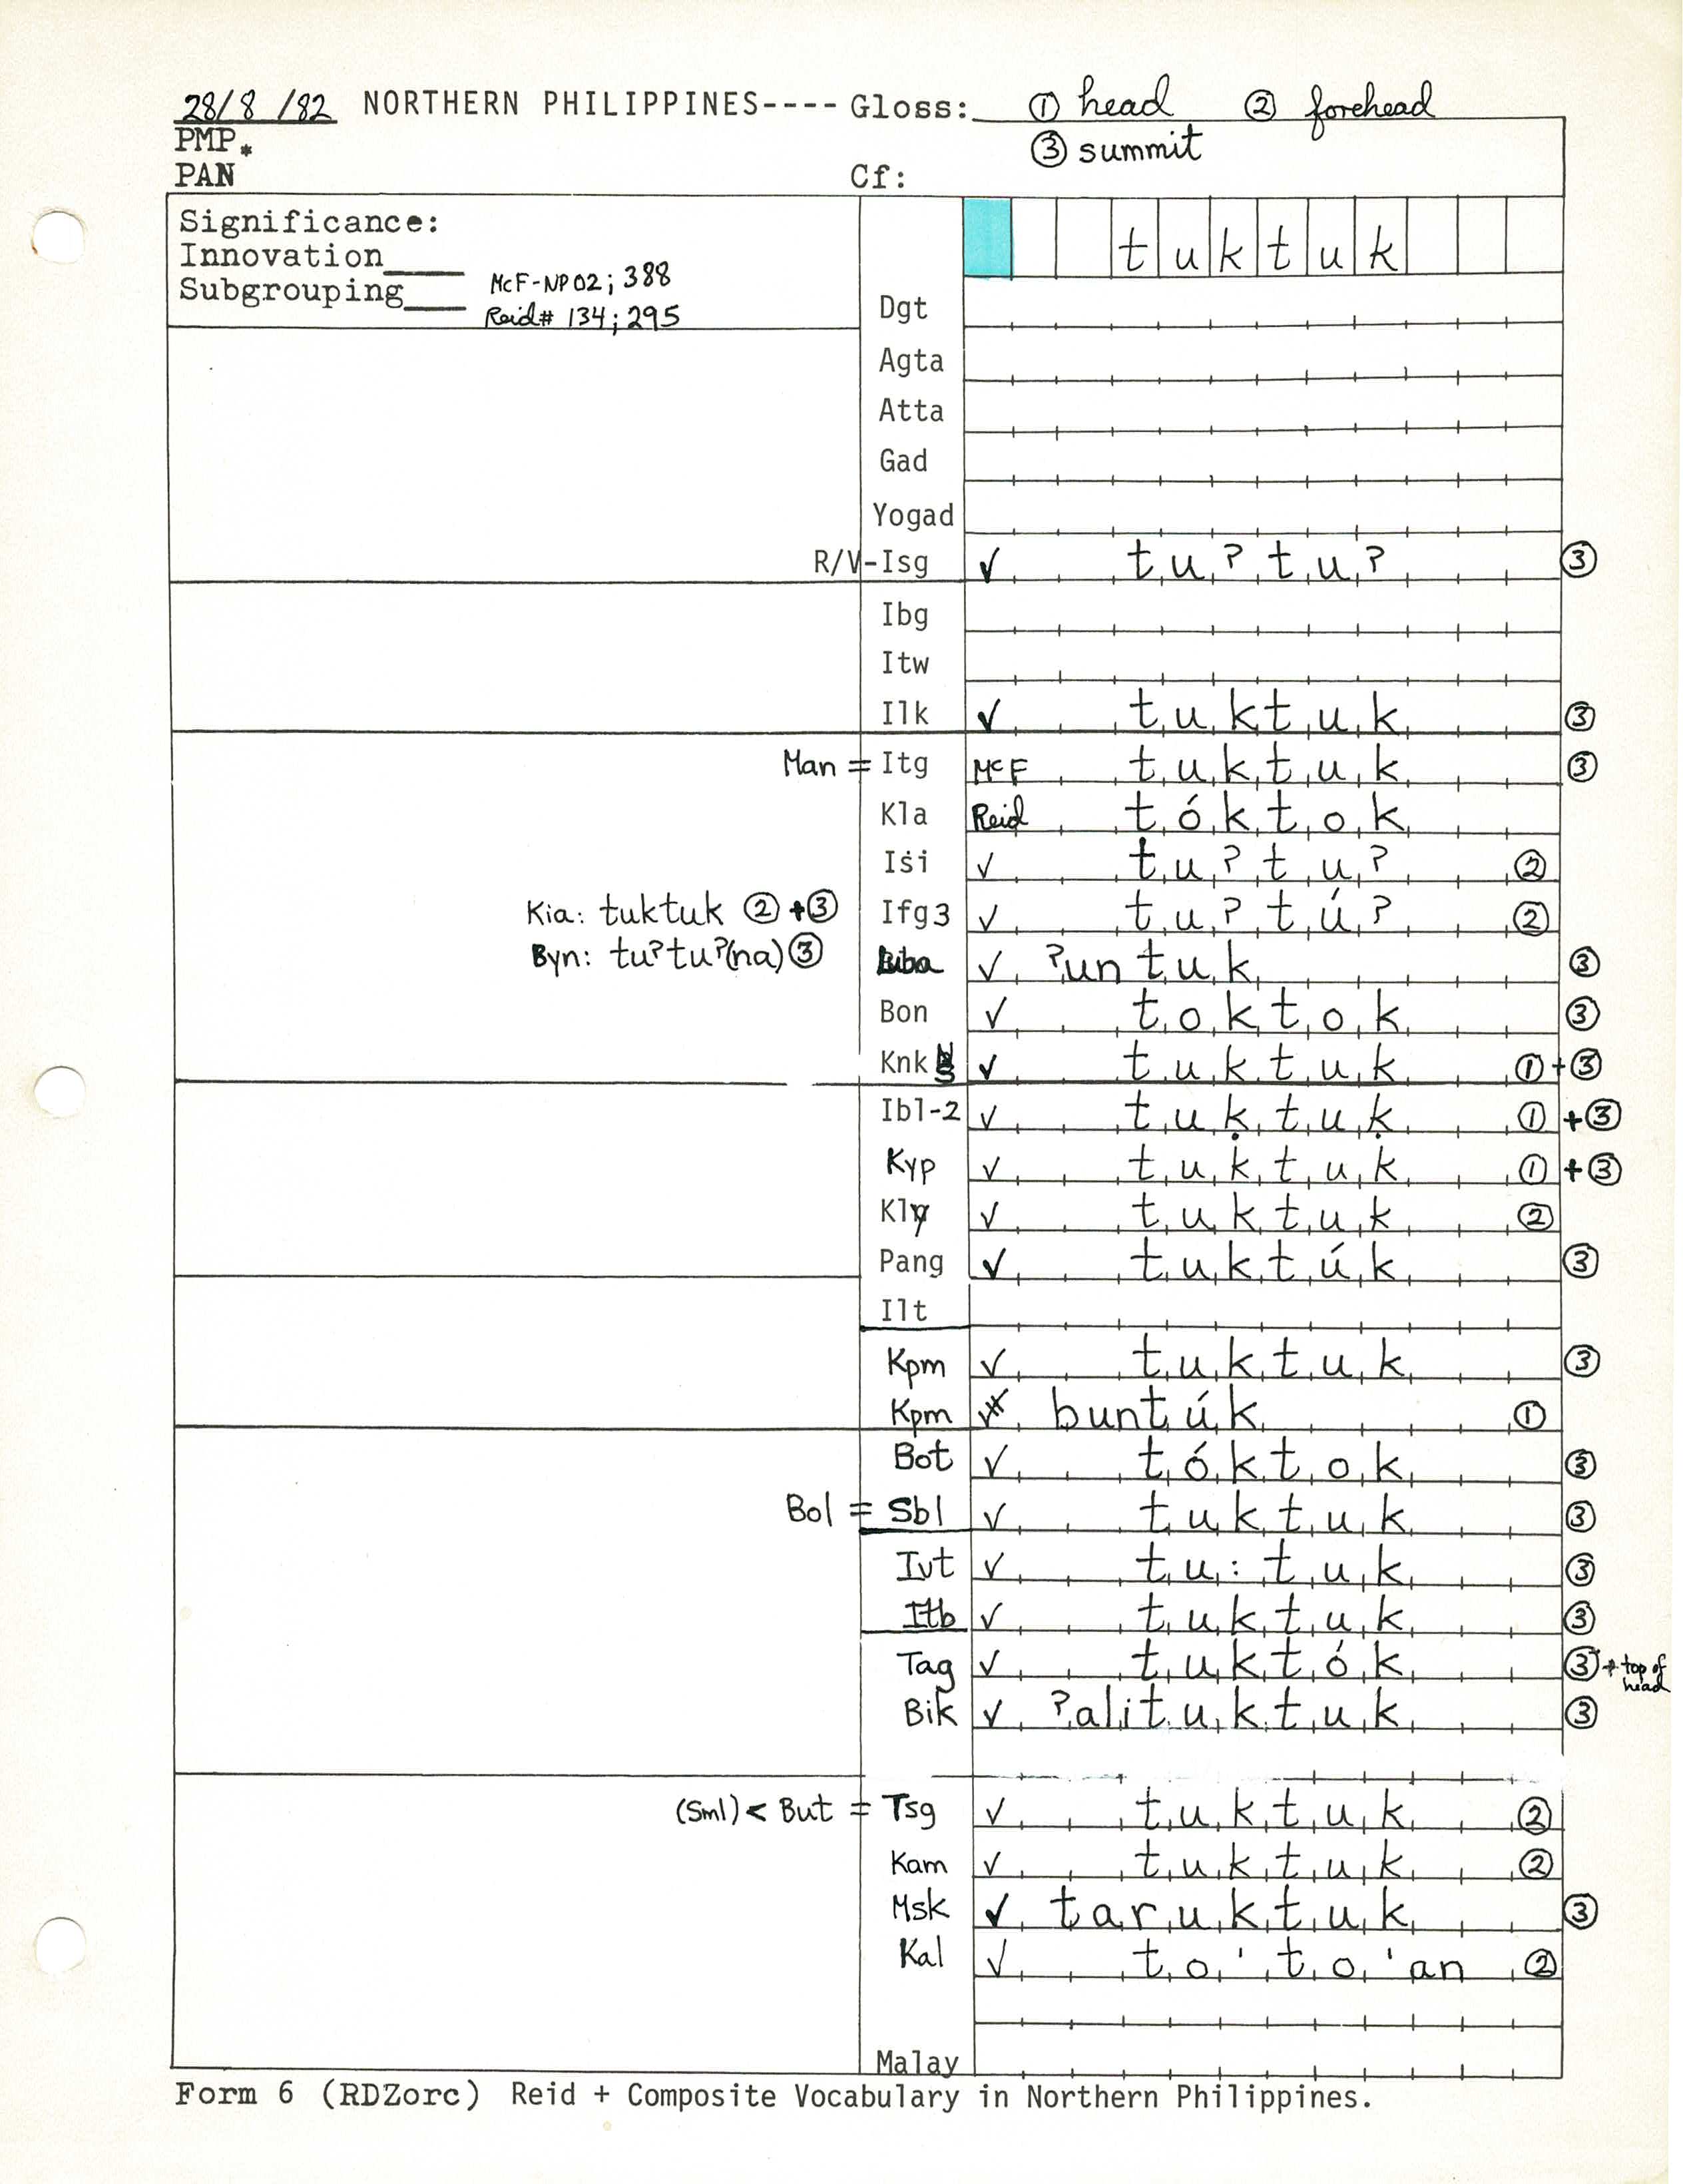 28/8/82 NORTHERN PHILIPPINES---- Gloss: ① head ② forehead
PMP* ③ summit
PAN Cf:
Significance:
Innovation____
Subgrouping____ McF-NP02; 388
Reid# 134; 295
tuktuk
Dgt
Agta
Atta
Gad
Yogad
R/V-Isg ✓ tu?tu? ③
Ibg
Itw
Ilk ✓ tuktuk ③
Man = Itg McF tuktuk ③
Kla Reid tóktok
Isi ✓ tu?tu? ②
Kia: tuktuk ② + ③ Ifg3 ✓ tu?tú? ②
Byn: tu?tu?(na) ③ Luba ✓ ?untuk ③
Bon ✓ toktok ③
Knk ✓ tuktuk ① + ③
Ibl-2 ✓ tuḳtuḳ ① + ③
Kyp ✓ tuktuk ① + ③
Kly ✓ tuktuk ②
Pang ✓ tuktúk ③
Ilt
Kpm ✓ tuktuk ③
Kpm buntúk ①
Bot ✓ tóktok ③
Bol = Sbl ✓ tuktuk ③
Ivt ✓ tu:tuk ③
Itb ✓ tuktuk ③
Tag ✓ tuktók ③ + top of head
Bik ✓ ?alituktuk ③
(Sml) < But = Tsg ✓ tuktuk ②
Kam ✓ tuktuk ②
Msk ✓ taruktuk ③
Kal ✓ to'to'an ②
Malay
Form 6 (RDZorc) Reid + Composite Vocabulary in Northern Philippines.